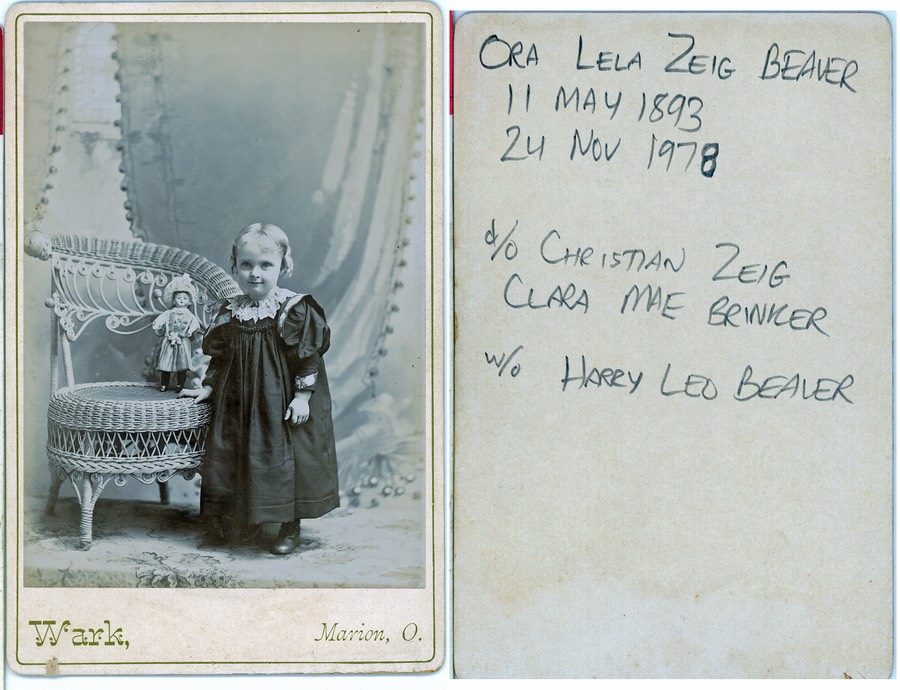 Wark,
Marion, O.
ORA LELA ZEIG BEAVER
11 MAY 1893
24 NOV 1978
d/o CHRISTIAN ZEIG
CLARA MAE BRINKER
w/o HARRY LEO BEAVER